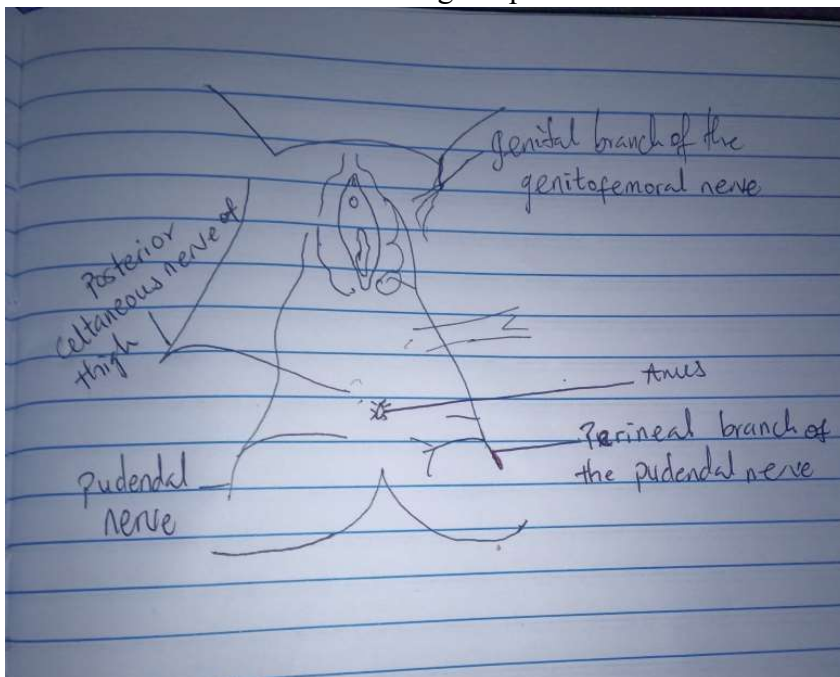 genital branch of the
genitofemoral nerve
Posterior
cutaneous nerve of
thigh
Anus
Perineal branch of
the pudendal nerve
pudendal
nerve